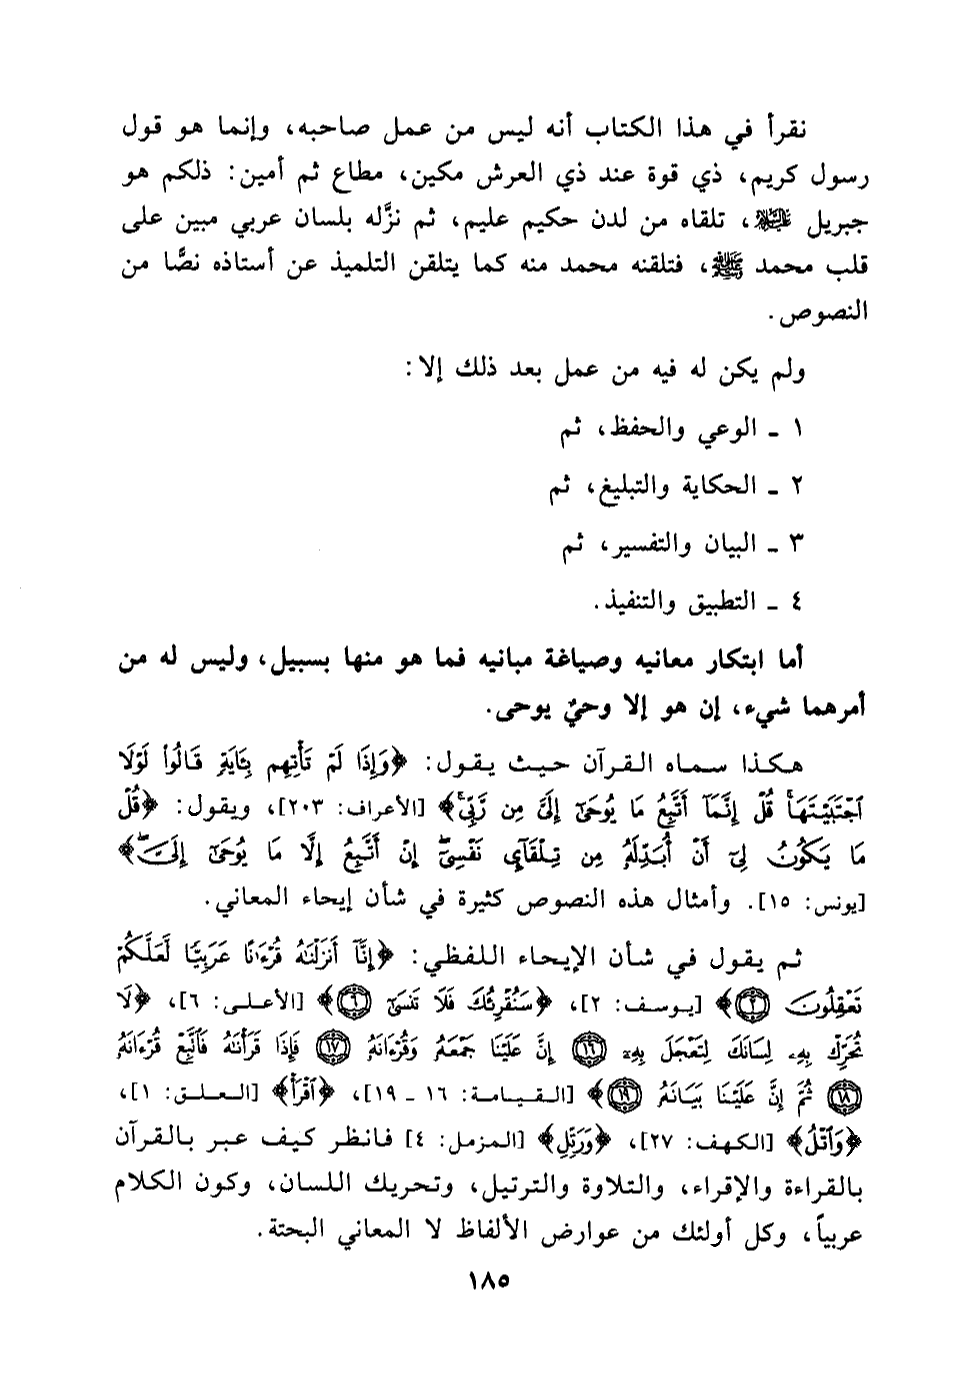 نقرأ في هذا الكتاب أنه ليس من عمل صاحبه، وإنما هو قول
رسول كريم، ذي قوة عند ذي العرش مكين، مطاع ثم أمين: ذلكم هو
جبريل عليه السلام، تلقاه من لدن حكيم عليم، ثم نزَّله بلسان عربي مبين على
قلب محمد ﷺ، فتلقنه محمد منه كما يتلقن التلميذ عن أستاذه نصًّا من
النصوص.
ولم يكن له فيه من عمل بعد ذلك إلا:
١ ـ الوعي والحفظ، ثم
٢ ـ الحكاية والتبليغ، ثم
٣ ـ البيان والتفسير، ثم
٤ ـ التطبيق والتنفيذ.
أما ابتكار معانيه وصياغة مبانيه فما هو منها بسبيل، وليس له من
أمرهما شيء، إن هو إلا وحيٌ يوحى.
هكذا سماه القرآن حيث يقول: ﴿وَإِذَا لَمْ تَأْتِهِم بِـَٔايَةٍ قَالُوا۟ لَوْلَا
ٱجْتَبَيْتَهَا ۚ قُلْ إِنَّمَآ أَتَّبِعُ مَا يُوحَىٰٓ إِلَىَّ مِن رَّبِّى ۚ﴾ [الأعراف: ٢٠٣]، ويقول: ﴿قُلْ
مَا يَكُونُ لِىٓ أَنْ أُبَدِّلَهُۥ مِن تِلْقَآئِ نَفْسِىٓ ۖ إِنْ أَتَّبِعُ إِلَّا مَا يُوحَىٰٓ إِلَىَّ ۖ﴾
[يونس: ١٥]. وأمثال هذه النصوص كثيرة في شأن إيحاء المعاني.
ثم يقول في شأن الإيحاء اللفظي: ﴿إِنَّآ أَنزَلْنَٰهُ قُرْءَٰنًا عَرَبِيًّا لَّعَلَّكُمْ
تَعْقِلُونَ ٢﴾ [يوسف: ٢]، ﴿سَنُقْرِئُكَ فَلَا تَنسَىٰٓ ٦﴾ [الأعلى: ٦]، ﴿لَا
تُحَرِّكْ بِهِۦ لِسَانَكَ لِتَعْجَلَ بِهِۦٓ ١٦ إِنَّ عَلَيْنَا جَمْعَهُۥ وَقُرْءَانَهُۥ ١٧ فَإِذَا قَرَأْنَٰهُ فَٱتَّبِعْ قُرْءَانَهُۥ
١٨ ثُمَّ إِنَّ عَلَيْنَا بَيَانَهُۥ ١٩﴾ [القيامة: ١٦ ـ ١٩]، ﴿ٱقْرَأْ﴾ [العلق: ١]،
﴿وَٱتْلُ﴾ [الكهف: ٢٧]، ﴿وَرَتِّلِ﴾ [المزمل: ٤] فانظر كيف عبر بالقرآن
بالقراءة والإقراء، والتلاوة والترتيل، وتحريك اللسان، وكون الكلام
عربياً، وكل أولئك من عوارض الألفاظ لا المعاني البحتة.
١٨٥